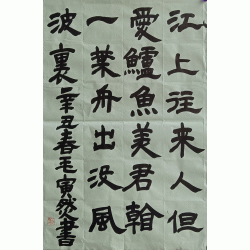 江上往来人但
愛鱸魚美君看
一葉舟出没風
波裏辛丑春毛寅然書